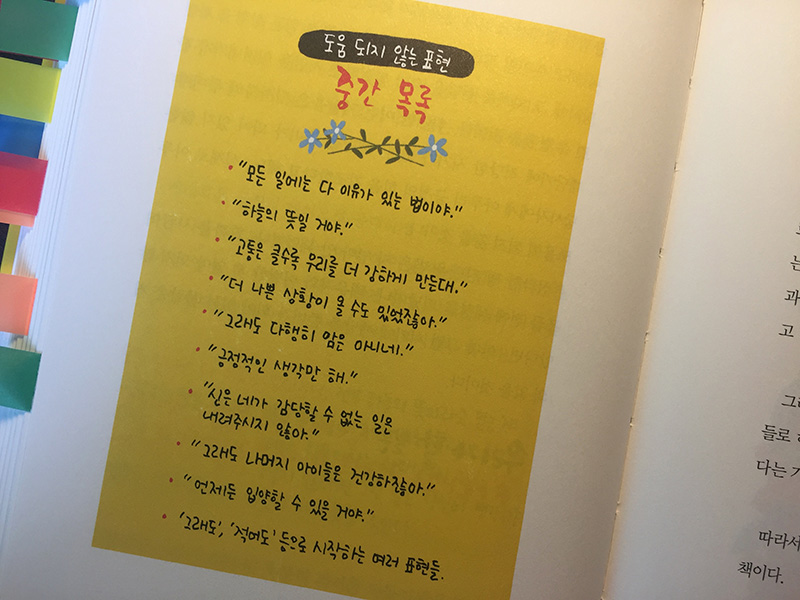 도움 되지 않는 표현
중간 목록
• "모든 일에는 다 이유가 있는 법이야."
• "하늘의 뜻일 거야."
• "고통은 클수록 우리를 더 강하게 만든대."
• "더 나쁜 상황이 올 수도 있었잖아."
• "그래도 다행히 암은 아니네."
• "긍정적인 생각만 해."
• "신은 네가 감당할 수 없는 일은
내려주시지 않아."
• "그래도 나머지 아이들은 건강하잖아."
• "언제든 입양할 수 있을 거야."
• '그래도', '적어도' 등으로 시작하는 여러 표현들.
는
과
고
들로
다는
따라서
책이다.